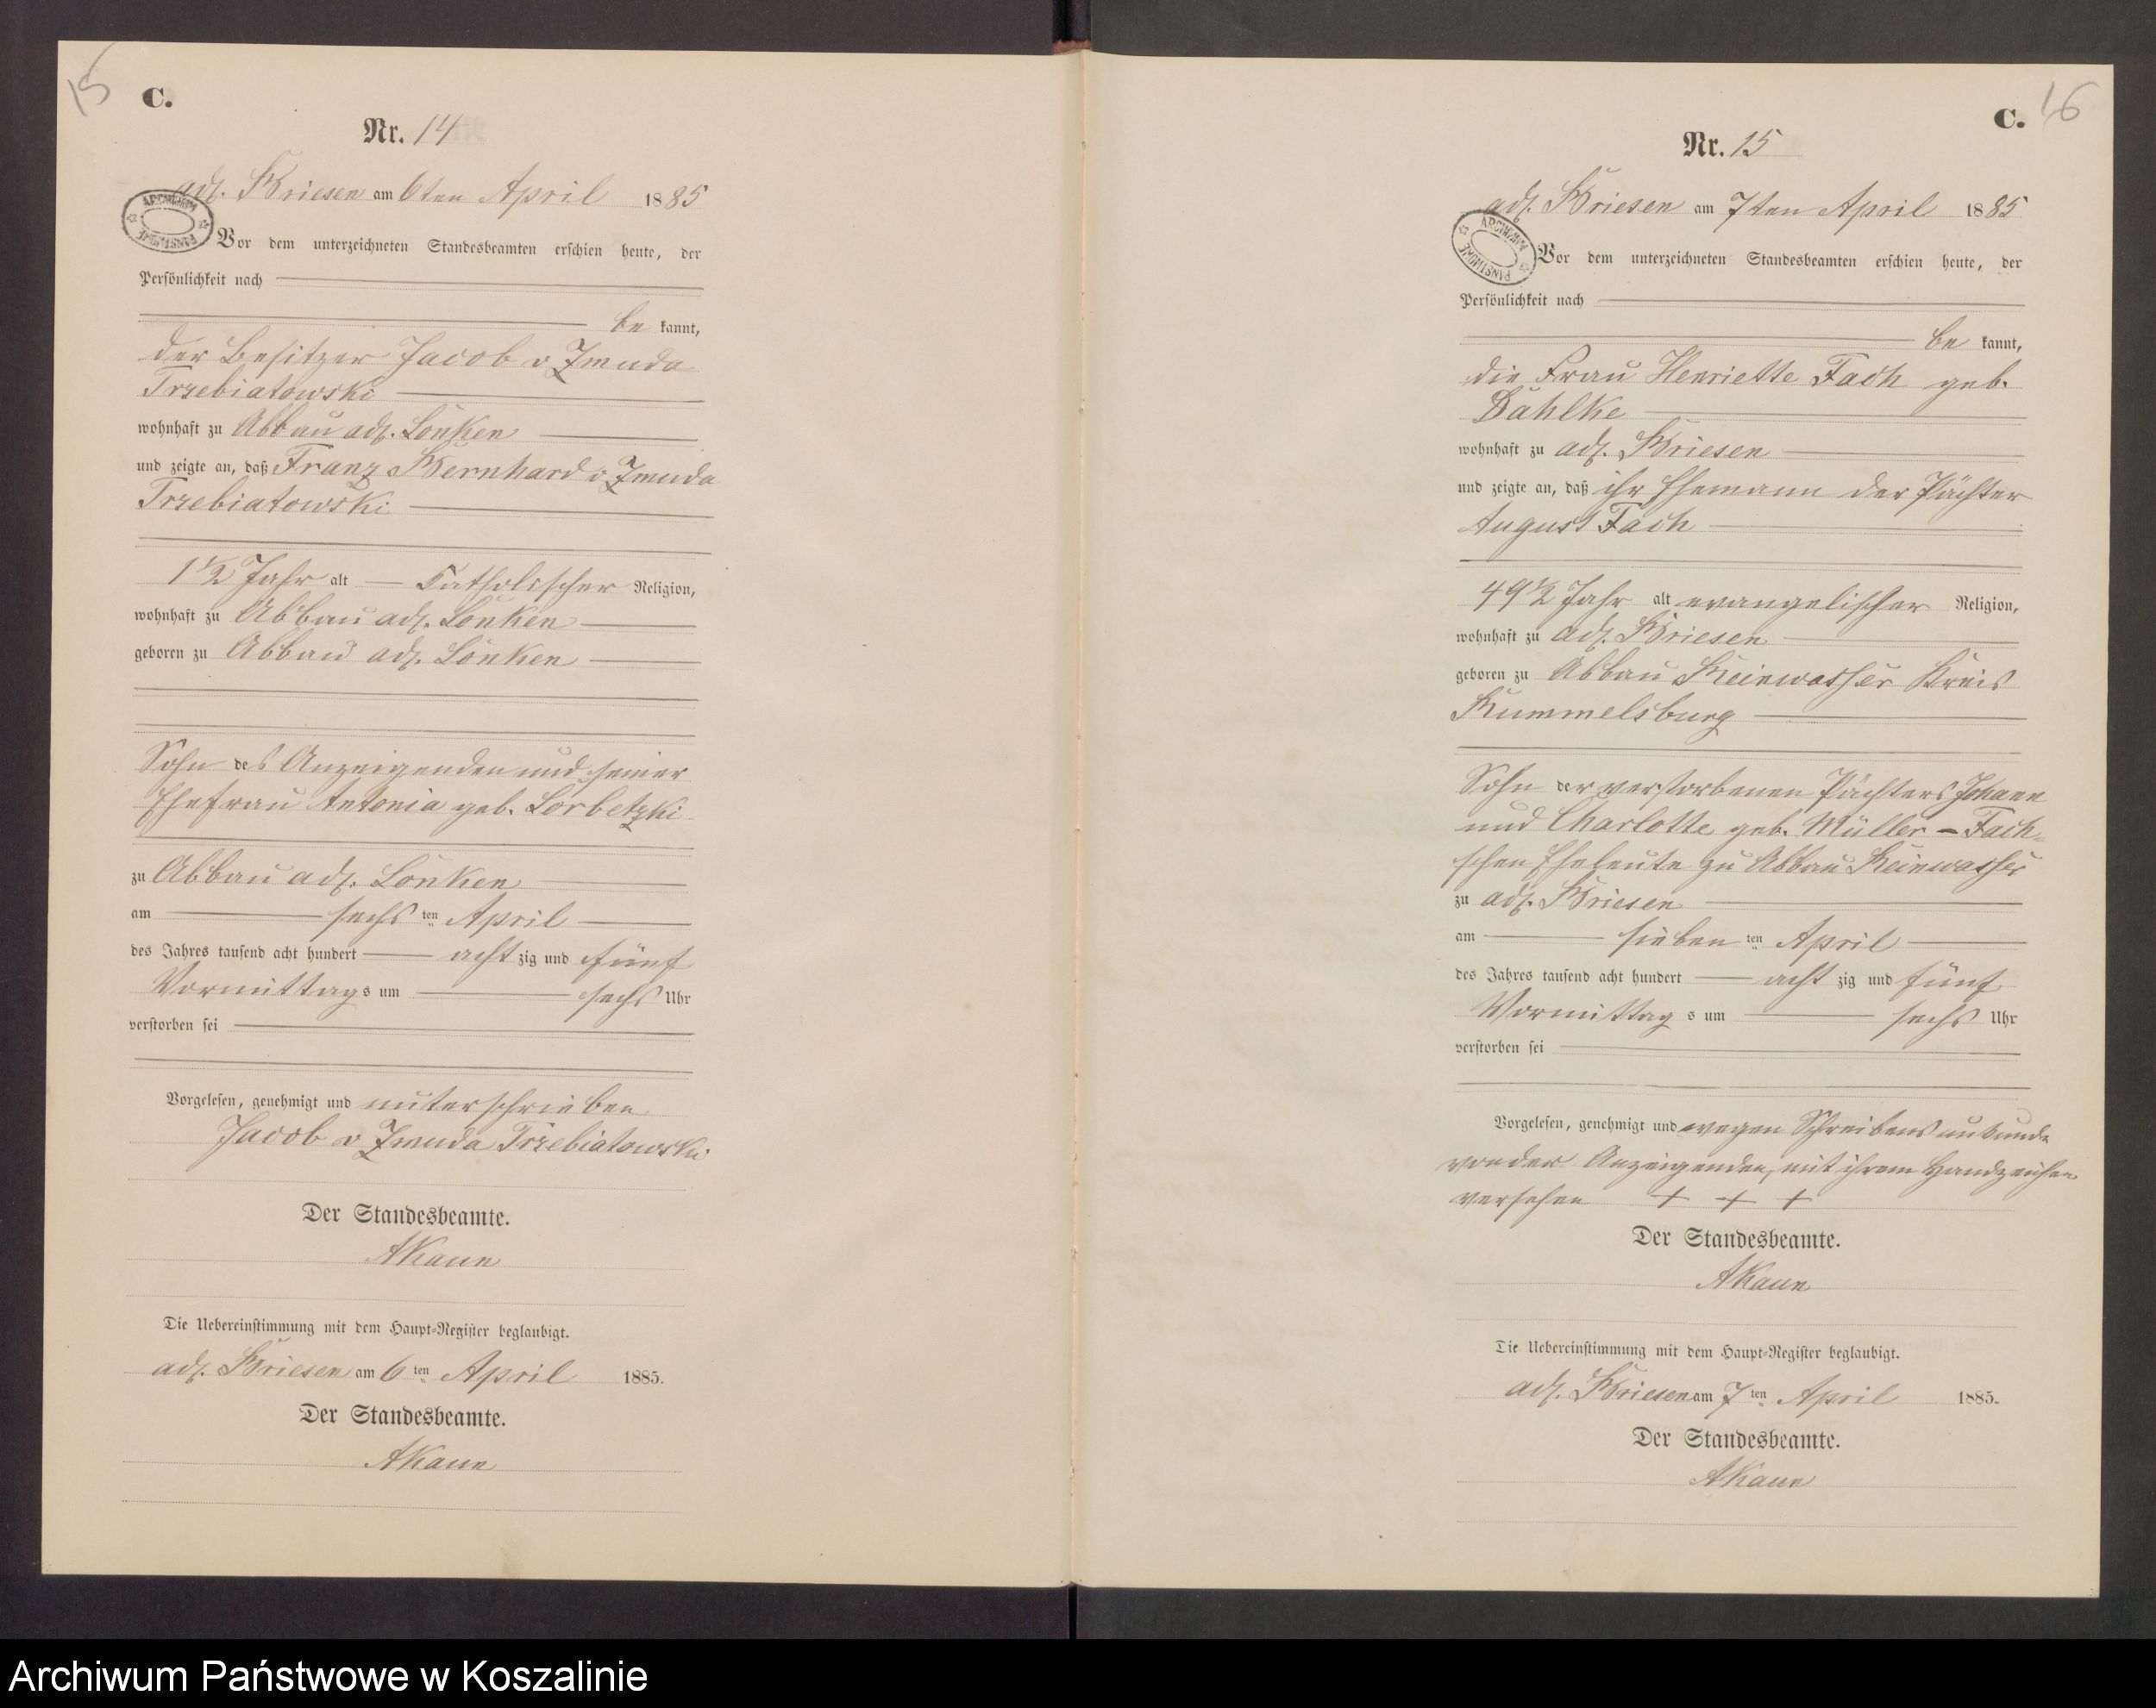 15
C.
Nr. 14
adl. Briesen am 6ten April 1885
ARCHIWUM PAŃSTWOWE
Vor dem unterzeichneten Standesbeamten erschien heute, der
Persönlichkeit nach
be kannt,
der Besitzer Jacob v Zmuda
Trzebiatowski
wohnhaft zu Abbau adl. Lonken
und zeigte an, daß Franz Bernhard v Zmuda
Trzebiatowski
1 1/2 Jahr alt — katholischer Religion,
wohnhaft zu Abbau adl. Lonken
geboren zu Abbau adl. Lonken
Sohn des Anzeigenden und seiner
Ehefrau Antonia geb. Lorbetzki
zu Abbau adl. Lonken
am sechs ten April
des Jahres tausend acht hundert acht zig und fünf
Vormittags um sechs Uhr
verstorben sei
Vorgelesen, genehmigt und unterschrieben
Jacob v Zmuda Trzebiatowski
Der Standesbeamte.
AKaun
Die Uebereinstimmung mit dem Haupt-Register beglaubigt.
adl. Briesen am 6 ten April 1885.
Der Standesbeamte.
AKaun
16
C.
Nr. 15
adl. Briesen am 7ten April 1885
ARCHIWUM PAŃSTWOWE
Vor dem unterzeichneten Standesbeamten erschien heute, der
Persönlichkeit nach
be kannt,
die Frau Henriette Fach geb.
Dahlke
wohnhaft zu adl. Briesen
und zeigte an, daß ihr Ehemann der Pächter
August Fach
49 1/2 Jahr alt evangelischer Religion,
wohnhaft zu adl. Briesen
geboren zu Abbau Reinwasser Kreis
Rummelsburg
Sohn der verstorbenen Pächters Johann
und Charlotte geb. Müller - Fach-
schen Eheleute zu Abbau Reinwasser
zu adl. Briesen
am sieben ten April
des Jahres tausend acht hundert acht zig und fünf
Vormittag s um sechs Uhr
verstorben sei
Vorgelesen, genehmigt und wegen Schreibensunkunde
von der Anzeigenden, mit ihrem Handzeichen
versehen + + +
Der Standesbeamte.
AKaun
Die Uebereinstimmung mit dem Haupt-Register beglaubigt.
adl. Briesen am 7 ten April 1885.
Der Standesbeamte.
AKaun
Archiwum Państwowe w Koszalinie